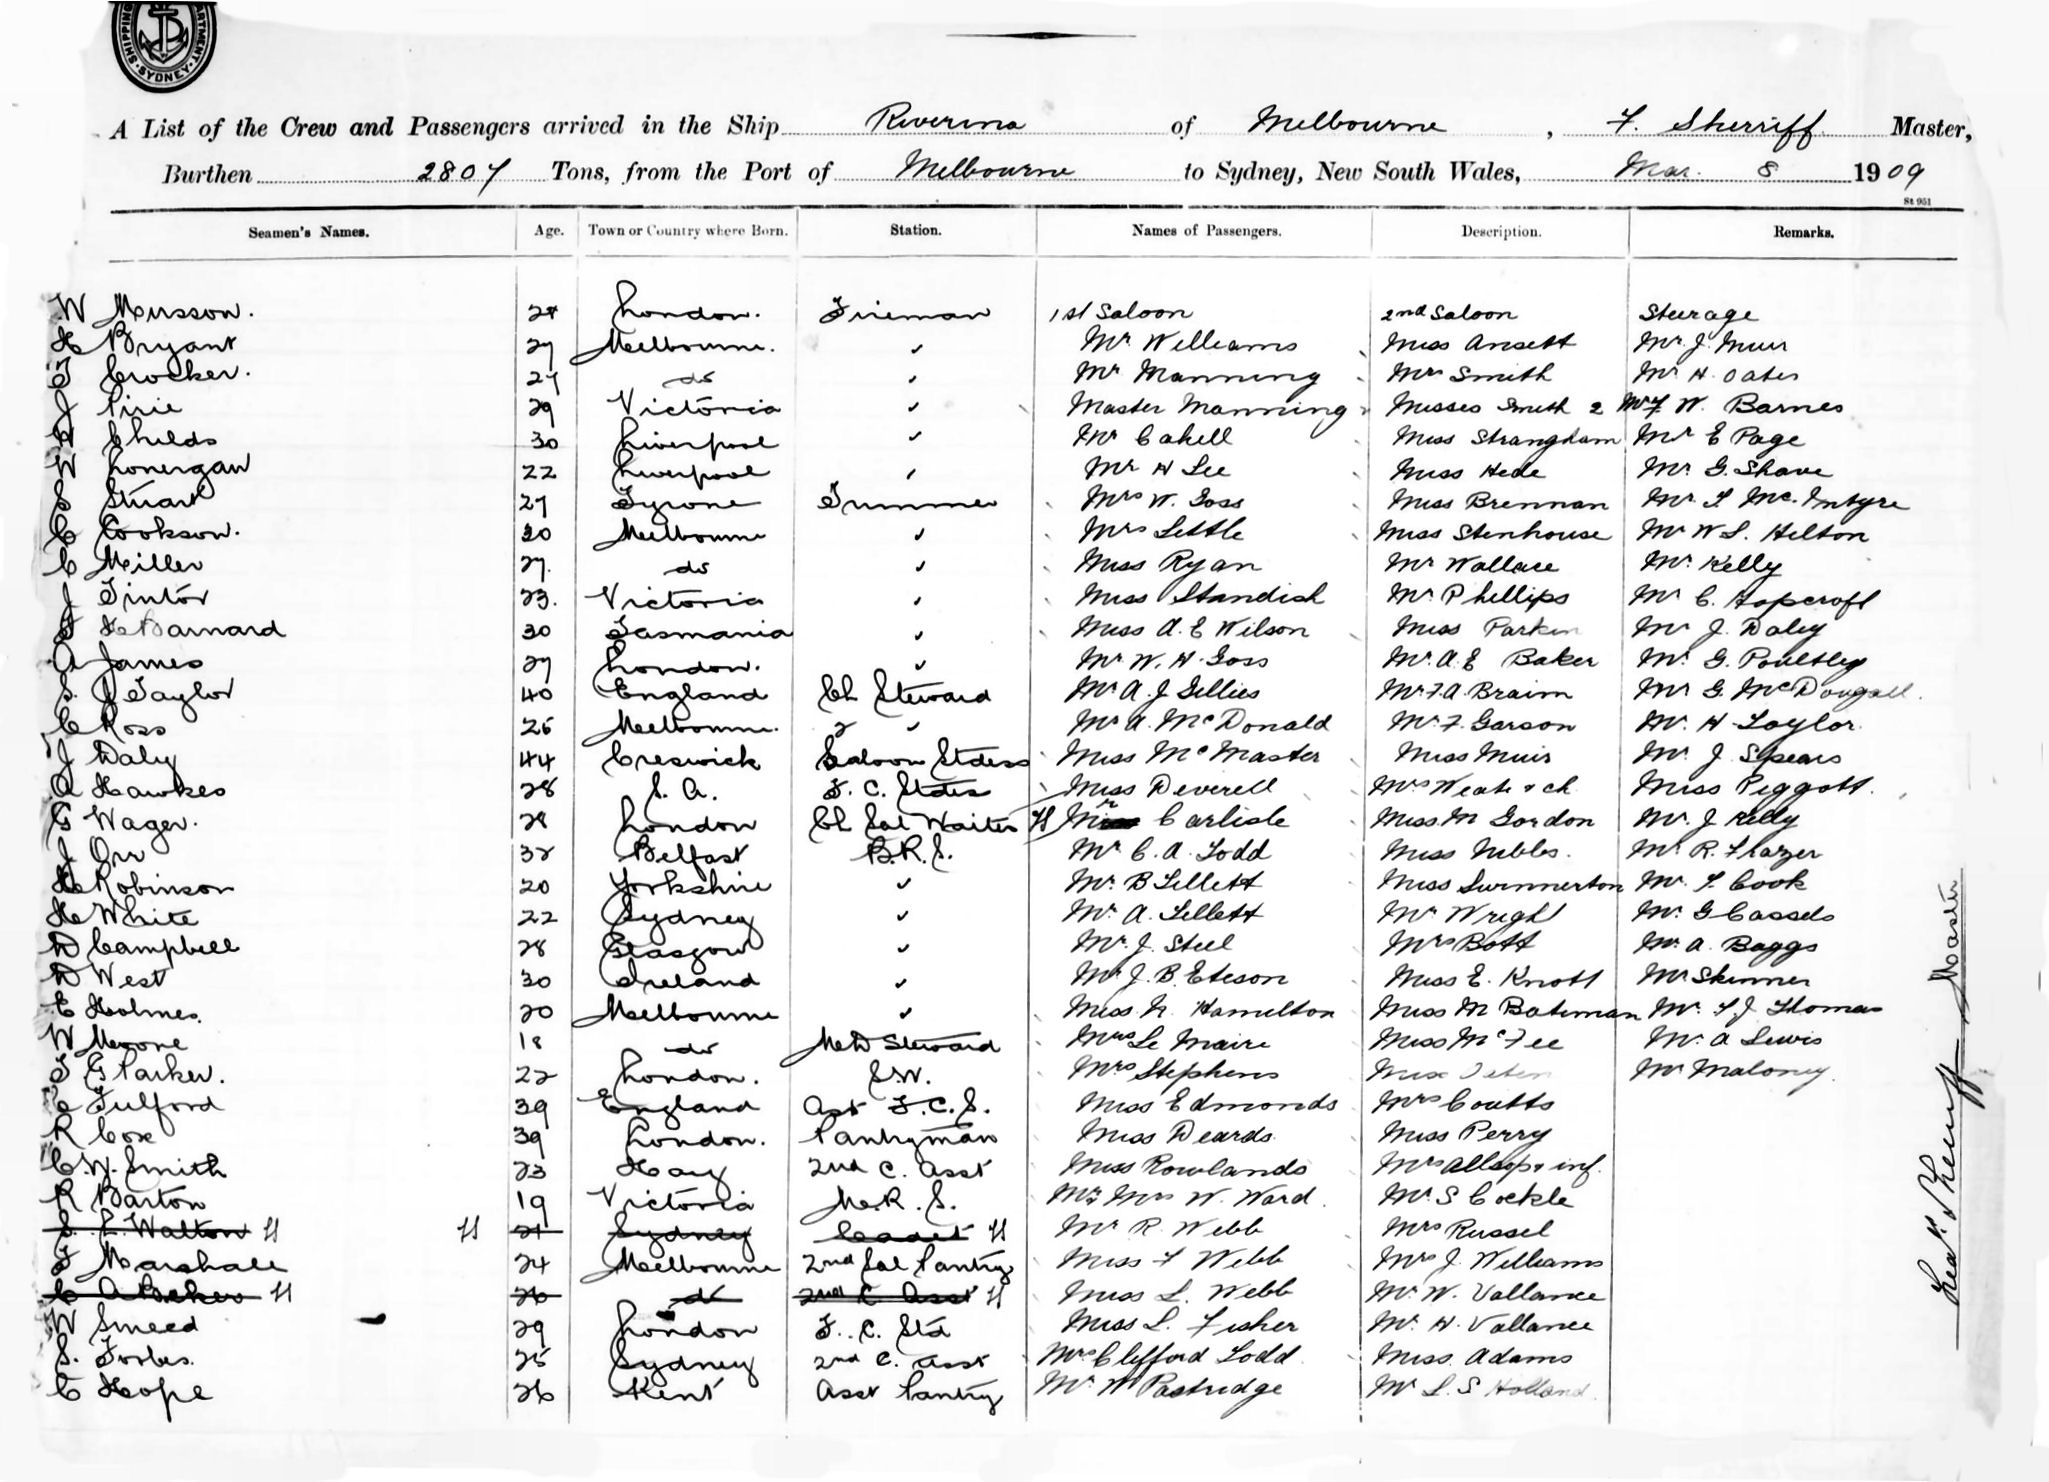 SHIPPING DEPARTMENT SYDNEY
A List of the Crew and Passengers arrived in the Ship Riverina of Melbourne, F. Sherriff Master,
Burthen 2807 Tons, from the Port of Melbourne to Sydney, New South Wales, Mar. 8 1909
St 951
Seamen's Names. Age. Town or Country where Born. Station. Names of Passengers. Description. Remarks.
W Musson. 24 London. Fireman 1st Saloon 2nd Saloon Steerage
H Bryant 27 Melbourne. ✓ Mr Williams Miss Ansett Mr J. Muir
T Crocker. 27 do ✓ Mr Manning Mrs Smith Mr H. Oates
J Pirie 29 Victoria ✓ Master Manning Misses Smith 2 Mr F. W. Barnes
H Childs 30 Liverpool ✓ Mr Cahell Miss Strangham Mr E Page
W Lonergan 22 Liverpool ✓ Mr H Lee Miss Hede Mr G. Shave
S Stuart 27 Tyrone Trimmer Mrs W. Goss Miss Brennan Mr T. McIntyre
C Cookson. 30 Melbourne ✓ Mrs Little Miss Stenhouse Mr W L. Hilton
C Miller 27. do ✓ Miss Ryan Mr Wallace Mr Kelly
J Tintor 23. Victoria ✓ Miss Standish Mr Phillips Mr C. Hopcroft
F H Barnard 30 Tasmania ✓ Miss A. E Wilson Miss Parkin Mr J. Daley
A James 27 London. ✓ Mr W. H. Goss Mr A. E Baker Mr G. Poultley
S. J Taylor 40 England Ch Steward Mr A. J Gillies Mr F. A. Braim Mr G. McDougall.
C Ross 25 Melbourne. 2 ✓ Mr A. McDonald Mr F. Garson Mr H Taylor.
J Daly 44 Creswick Saloon Stdess Miss McMaster Miss Muir Mr J. Spears
A Hawkes 28 S. A. F. C. Stdes Miss Deverell Mrs & ch. Miss Piggott.
G Wager. 28 London Ch Sal Waiter H Mr Carlisle Miss M Gordon Mr J Kelly
J Orr 32 Belfast B.R.S. Mr C. A. Todd Miss Nibbs. Mr R. Frazer
H Robinson 20 Yorkshire ✓ Mr B Tellett Miss Swinnerton Mr T. Cook
H White 22 Sydney ✓ Mr A. Tellett Mr Wright Mr G Cassels
D Campbell 28 Glasgow ✓ Mr J. Steel Mrs Bott Mr A. Baggs
D West 30 Ireland ✓ Mr J. B. Eteson Miss E. Knott Mr Skinner
E Holmes. 20 Melbourne ✓ Miss N. Hamilton Miss M Bateman Mr T. J. Thomas
W Moore 18 do M&D Steward Mrs Le Maire Miss McFee Mr A Lewis
T G Parker. 22 London. S.W. Mrs Stephens Miss Mr Maloney.
C Fulford 39 England Ast F.C.S. Miss Edmonds Mrs Coutts
R Cox 39 London. Pantryman Miss Deards Miss Perry
C. W. Smith 23 Hay 2nd C. Asst Miss Rowlands Mrs Allsop & inf.
R Barton 19 Victoria M.R.S. Mr & Mrs W. Ward Mr S Cockle
S. L. Walton H H 21 Sydney Cadet H Mr R. Webb Mrs Russel
F Marshall 24 Melbourne 2nd Sal Pantry Miss F Webb Mrs J. Williams
C A Baker H 26 do 2nd C Asst H Miss L. Webb Mr W. Vallance
W Smeed 29 London F. C. Std Miss L. Fisher Mr H. Vallance
S. Forbes. 25 Sydney 2nd C. Asst Mrs Clifford Todd Miss Adams
C Hope 26 Kent Asst Pantry Mr W Partridge Mr L. S Holland.
Master